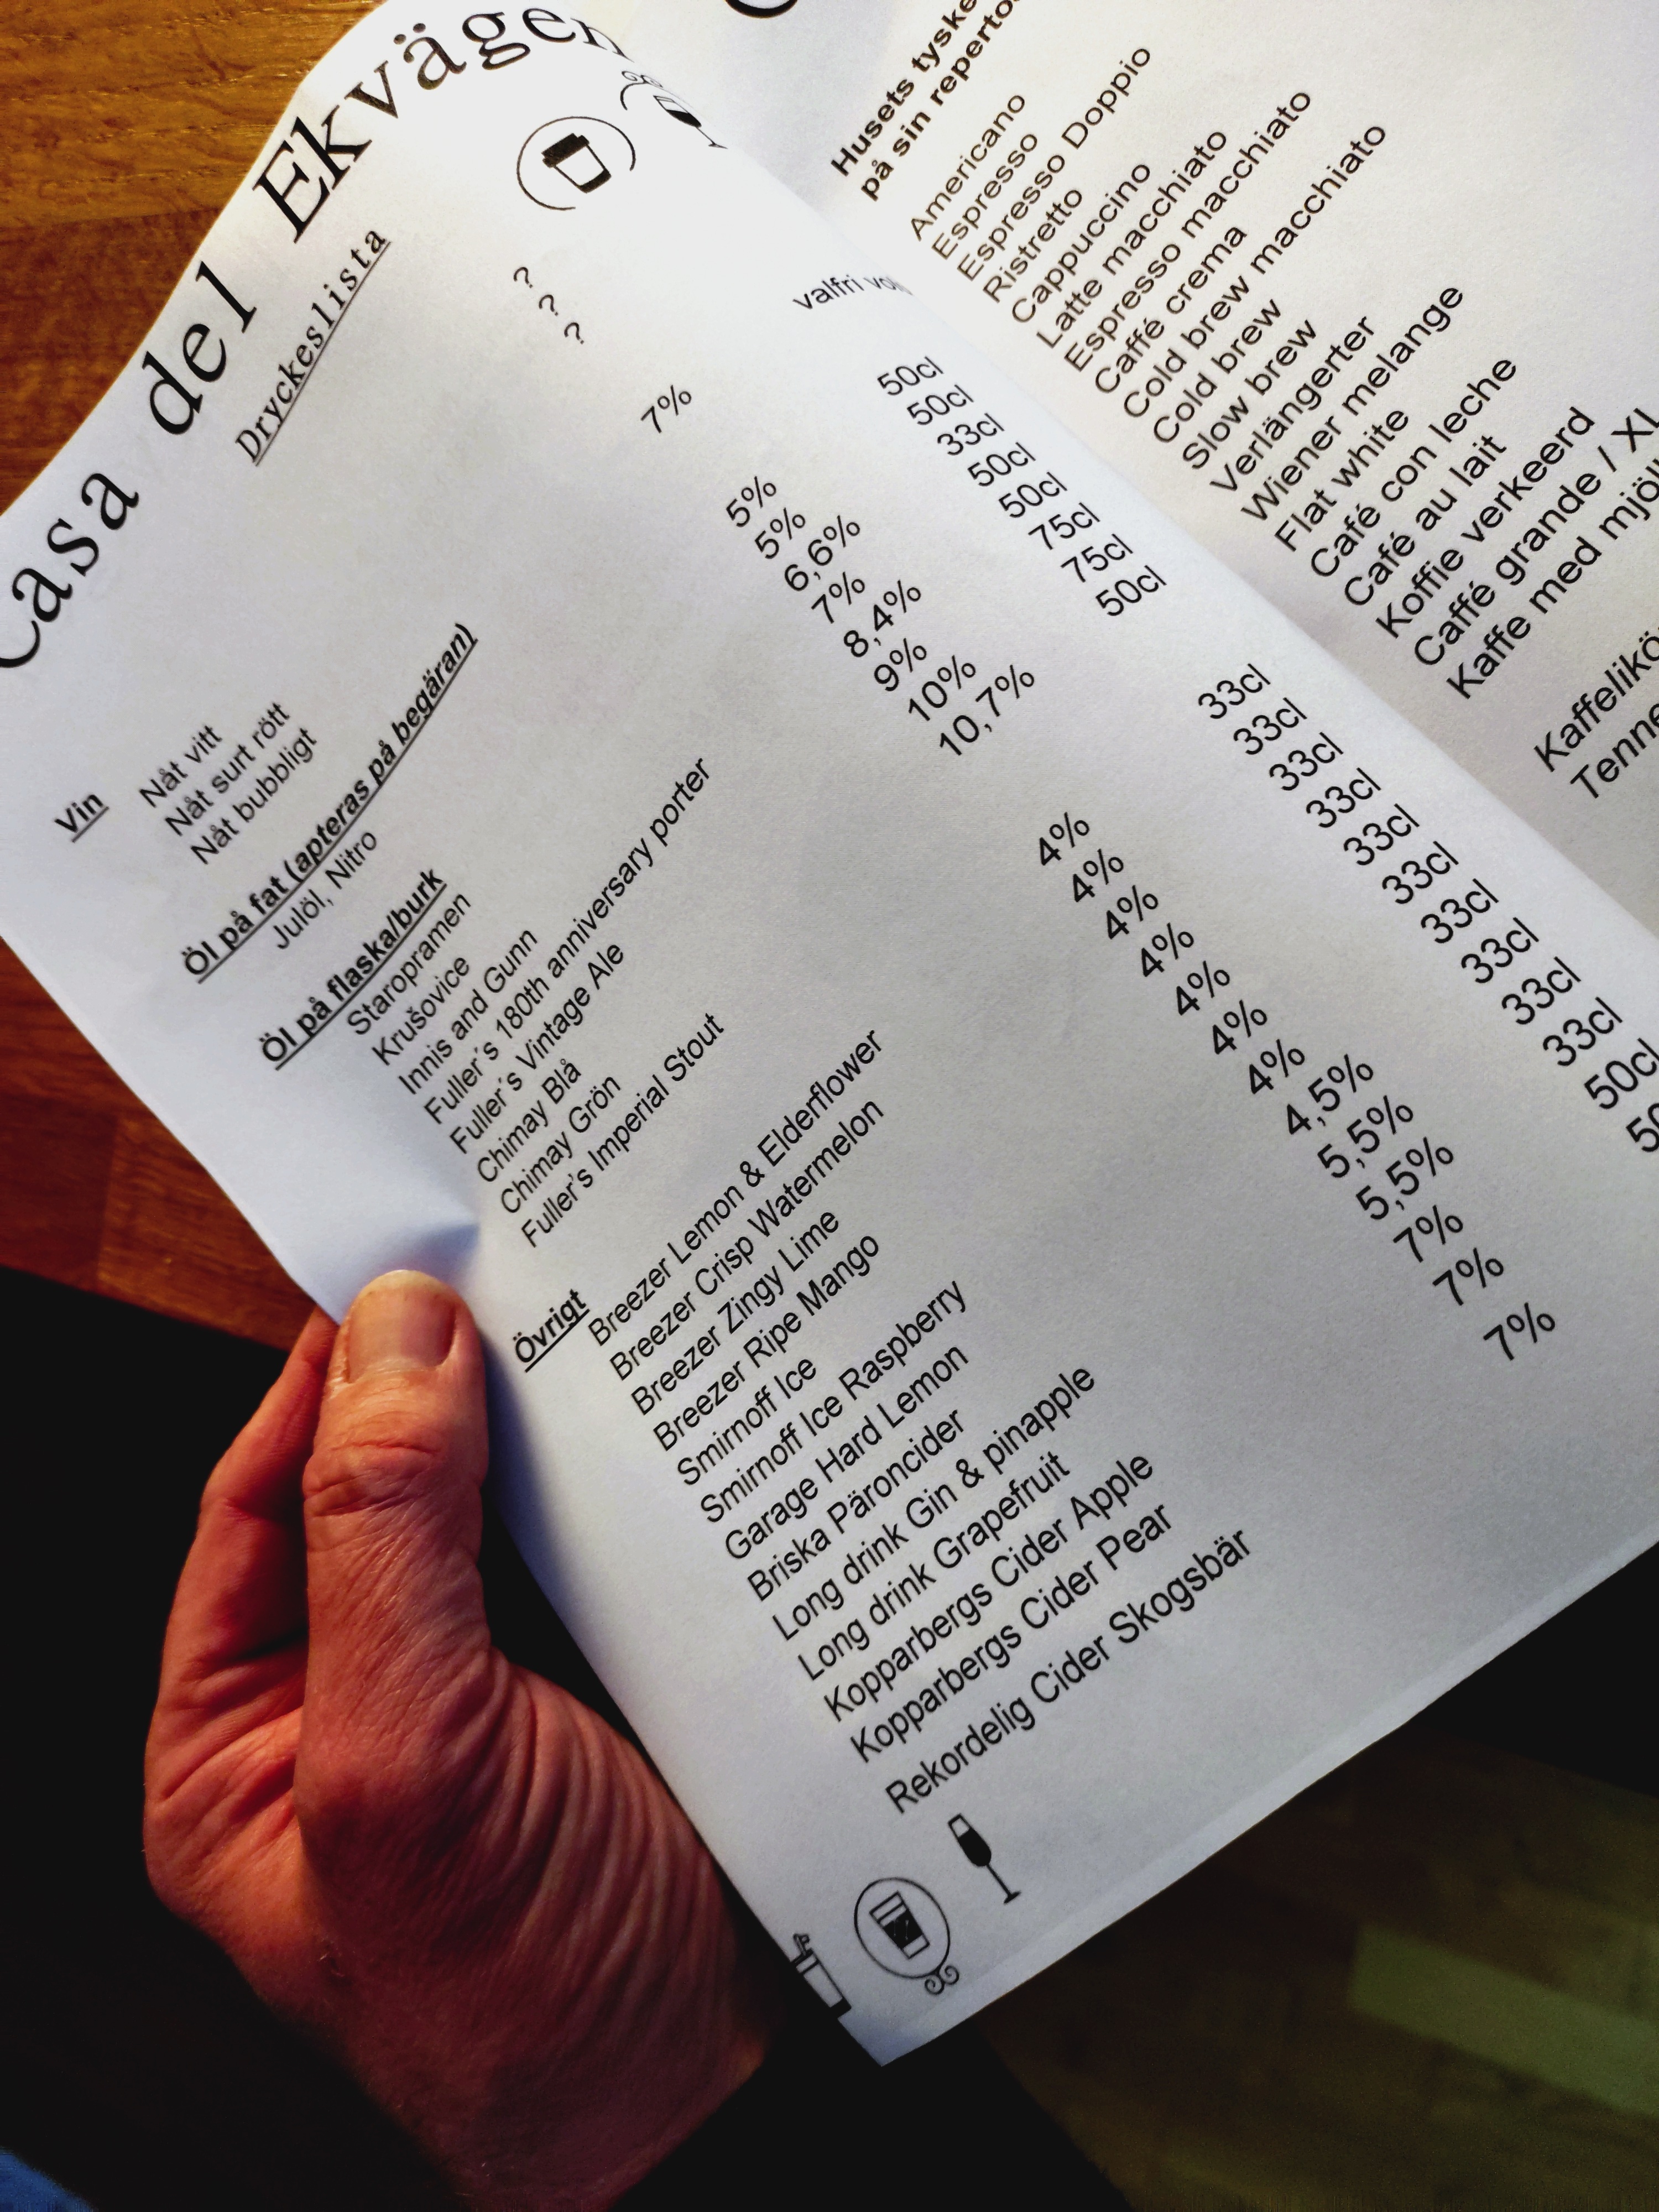 Casa del Ekvägen
Dryckeslista
Vin
Nåt vitt ?
Nåt surt rött ?
Nåt bubbligt ?
Öl på fat (apteras på begäran)
Julöl, Nitro 7% valfri
Öl på flaska/burk
Staropramen 5% 50cl
Krušovice 5% 50cl
Innis and Gunn 6,6% 33cl
Fuller´s 180th anniversary porter 7% 50cl
Fuller´s Vintage Ale 8,4% 50cl
Chimay Blå 9% 75cl
Chimay Grön 10% 75cl
Fuller's Imperial Stout 10,7% 50cl
Övrigt
Breezer Lemon & Elderflower 4% 33cl
Breezer Crisp Watermelon 4% 33cl
Breezer Zingy Lime 4% 33cl
Breezer Ripe Mango 4% 33cl
Smirnoff Ice 4% 33cl
Smirnoff Ice Raspberry 4% 33cl
Garage Hard Lemon 4% 33cl
Briska Päroncider 4,5% 33cl
Long drink Gin & pinapple 5,5% 33cl
Long drink Grapefruit 5,5% 33cl
Kopparbergs Cider Apple 7% 50cl
Kopparbergs Cider Pear 7%
Rekordelig Cider Skogsbär 7%
Husets tyske
på sin
Americano
Espresso
Espresso Doppio
Ristretto
Cappuccino
Latte macchiato
Espresso macchiato
Caffé crema
Cold brew macchiato
Cold brew
Slow brew
Verlängerter
Wiener melange
Flat white
Café con leche
Café au lait
Koffie verkeerd
Caffé grande / XL
Kaffe med